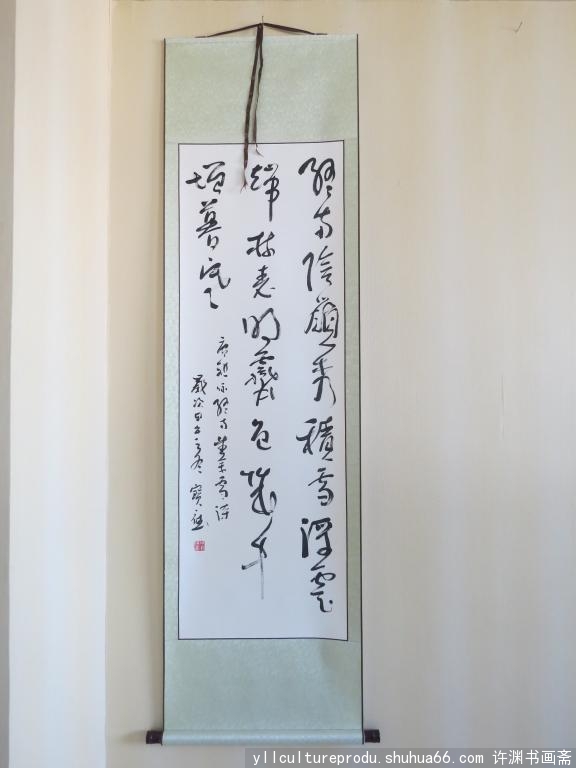 終南陰嶺秀積雪浮雲
端林表明霽色城中
增暮寒
唐祖詠終南望余雪詩
歲次之冬 寶
yllcultureprodu.shuhua66.com 许渊书画斋